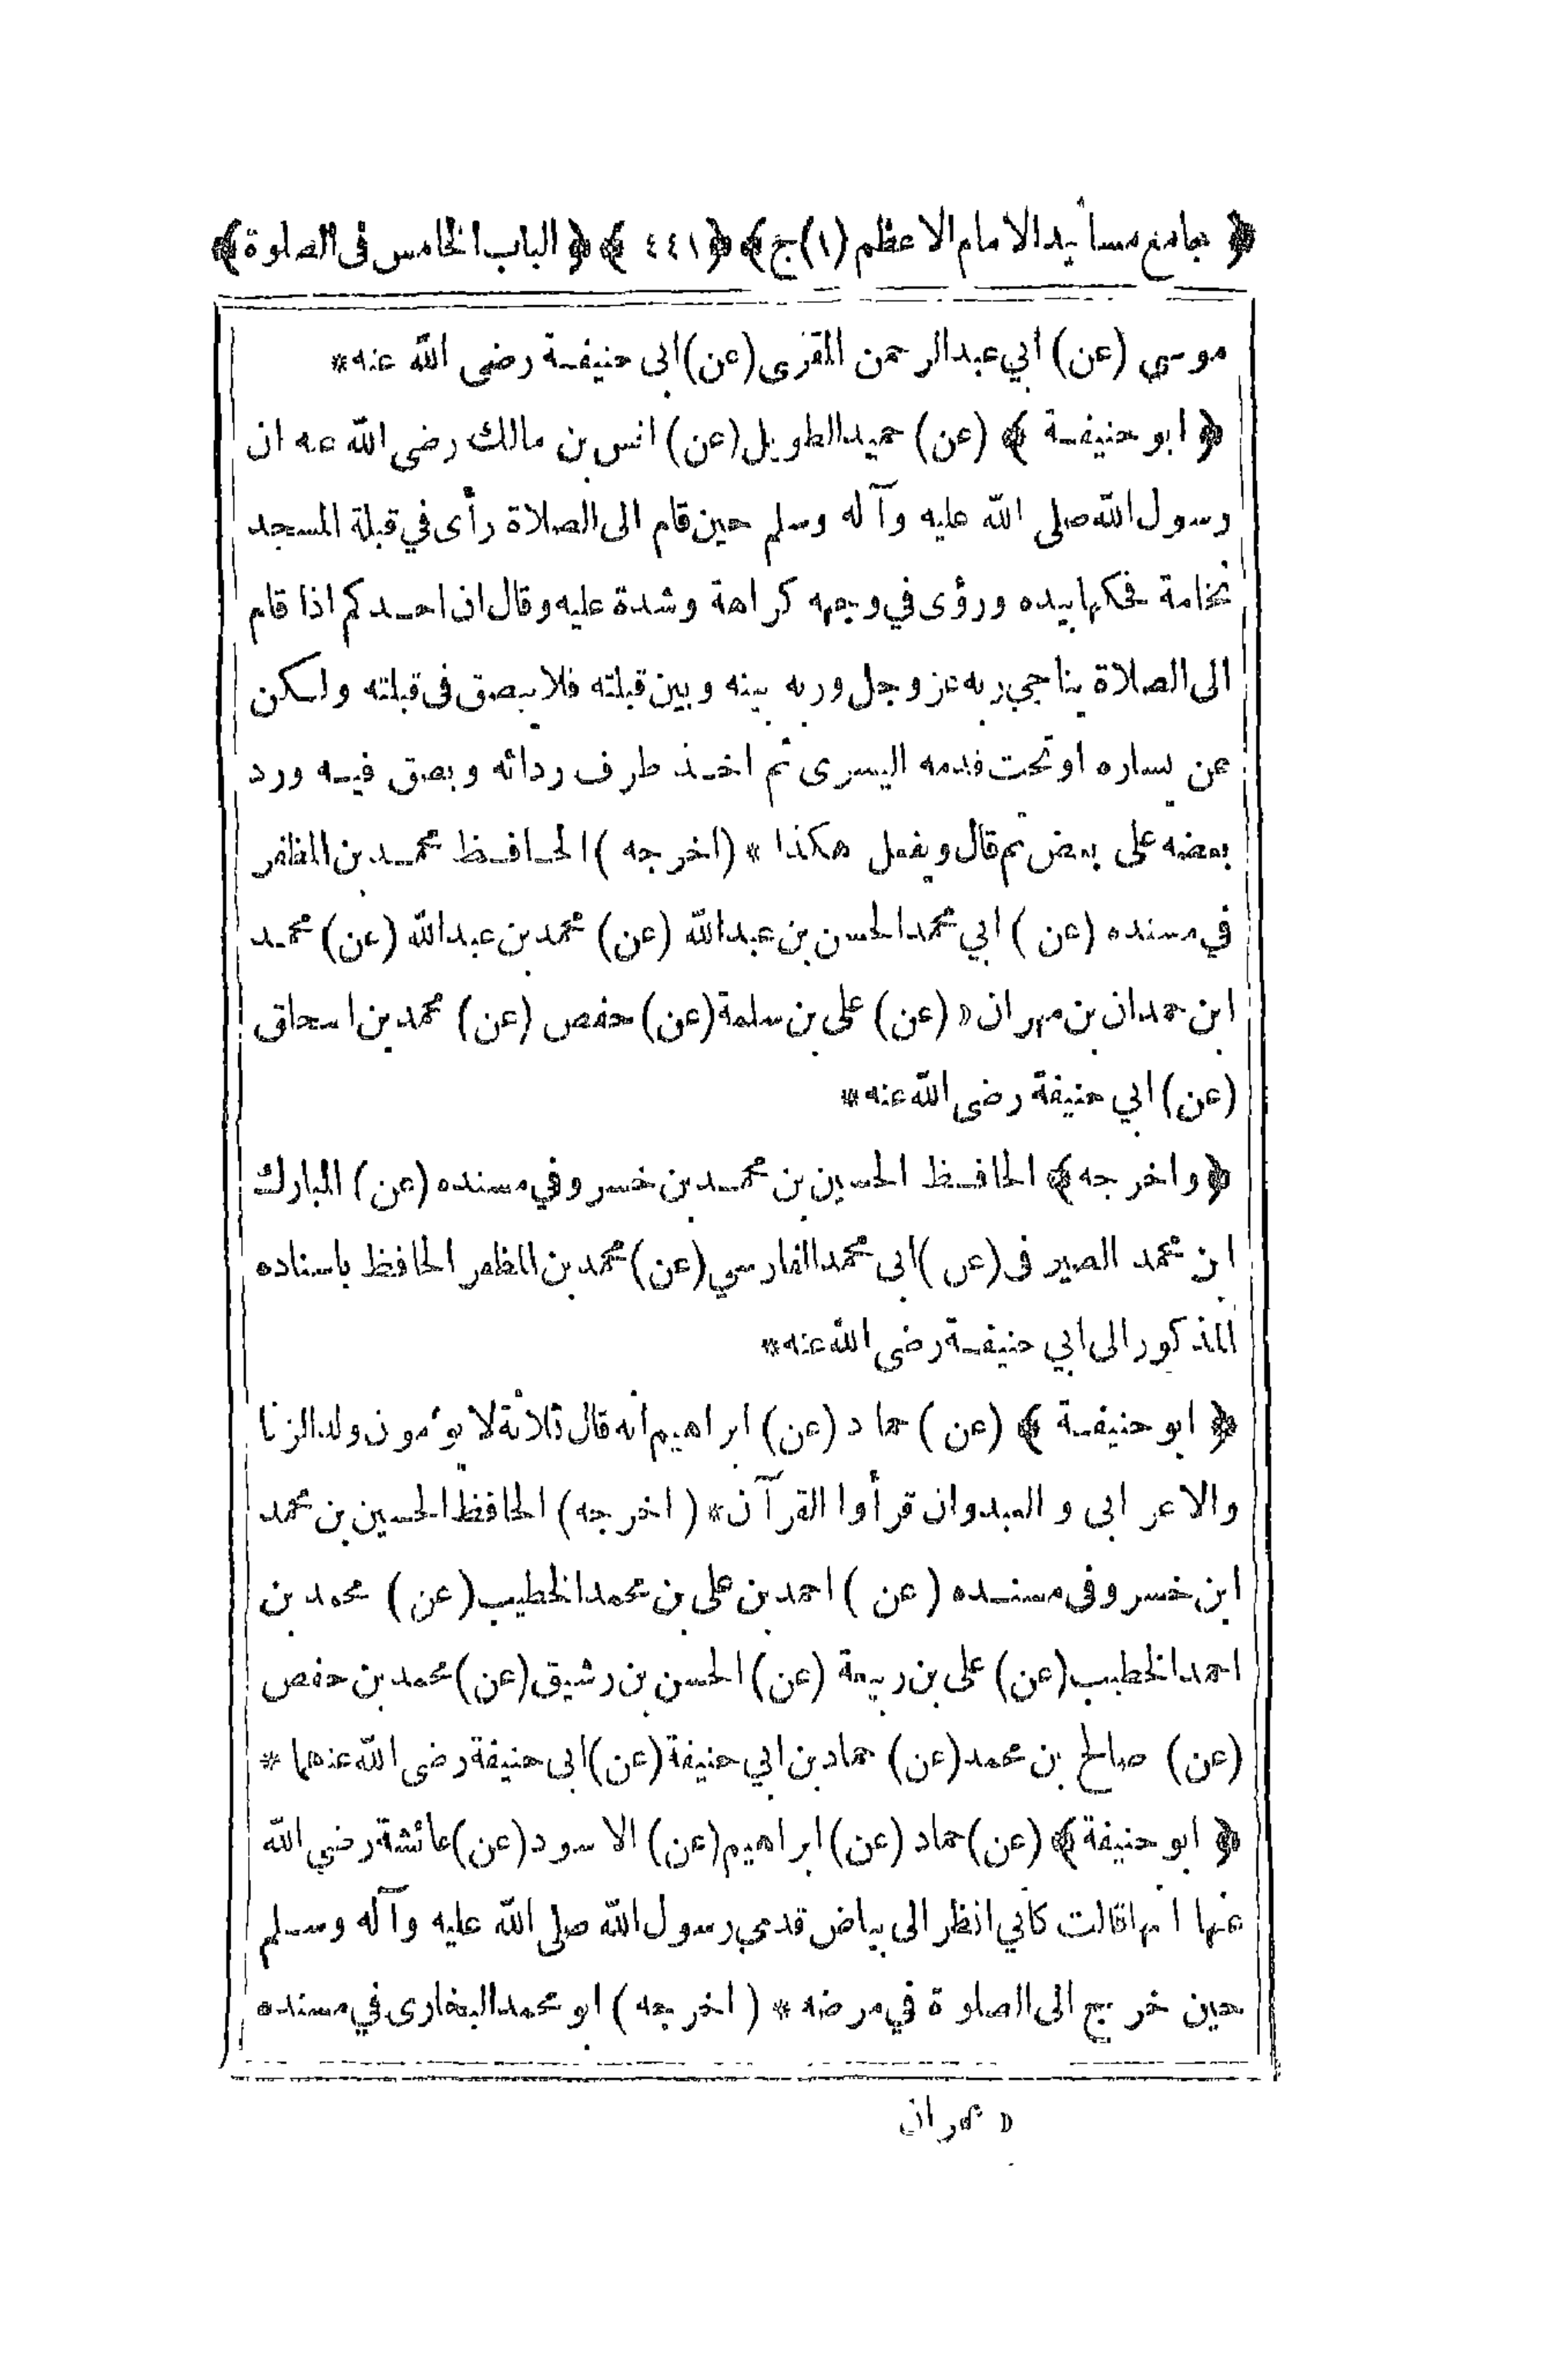 ﴿ جامع مسانيد الامام الاعظم (١)ج﴾ ﴿ ٤٤١ ﴾ ﴿ الباب الخامس فى الصلوة ﴾
موسى (عن) ابي عبد الرحمن المقرى (عن) ابى حنيفة رضى الله عنه*
﴿ ابو حنيفة ﴾ (عن) حميد الطويل (عن) انس بن مالك رضى الله عنه ان
رسول الله صلى الله عليه وآله وسلم حين قام الى الصلاة رأى في قبلة المسجد
نخامة فحكها بيده ورؤى في وجهه كراهة وشدة عليه وقال ان احدكم اذا قام
الى الصلاة يناجي ربه عز وجل وربه بينه وبين قبلته فلا يبصق فى قبلته ولكن
عن يساره او تحت قدمه اليسرى ثم اخذ طرف ردائه وبصق فيه ورد
بعضه على بعض ثم قال ويفعل هكذا * (اخرجه) الحافظ محمد بن المظفر
في مسنده (عن) ابي محمد الحسن بن عبد الله (عن) محمد بن عبد الله (عن) محمد
ابن حمدان بن مهران « (عن) على بن سلمة (عن) حفص (عن) محمد بن اسحاق
(عن) ابي حنيفة رضى الله عنه*
﴿ واخرجه ﴾ الحافظ الحسين بن محمد بن خسرو في مسنده (عن) المبارك
ابن محمد الصيرفى (عن) ابى محمد الفارسي (عن) محمد بن المظفر الحافظ باسناده
المذكور الى ابي حنيفة رضى الله عنه*
﴿ ابو حنيفة ﴾ (عن) حماد (عن) ابراهيم انه قال ثلاثة لا يؤمون ولد الزنا
والاعرابى والعبد وان قرأوا القرآن* (اخرجه) الحافظ الحسين بن محمد
ابن خسرو فى مسنده (عن) احمد بن على بن محمد الخطيب (عن) محمد بن
احمد الخطيب (عن) على بن ربيعة (عن) الحسن بن رشيق (عن) محمد بن حفص
(عن) صالح بن محمد (عن) حماد بن ابي حنيفة (عن) ابى حنيفة رضى الله عنهما *
﴿ ابو حنيفة ﴾ (عن) حماد (عن) ابراهيم (عن) الاسود (عن) عائشة رضي الله
عنها انها قالت كأني انظر الى بياض قدمي رسول الله صلى الله عليه وآله وسلم
حين خرج الى الصلوة في مرضه * (اخرجه) ابو محمد البخارى في مسنده
« عمران